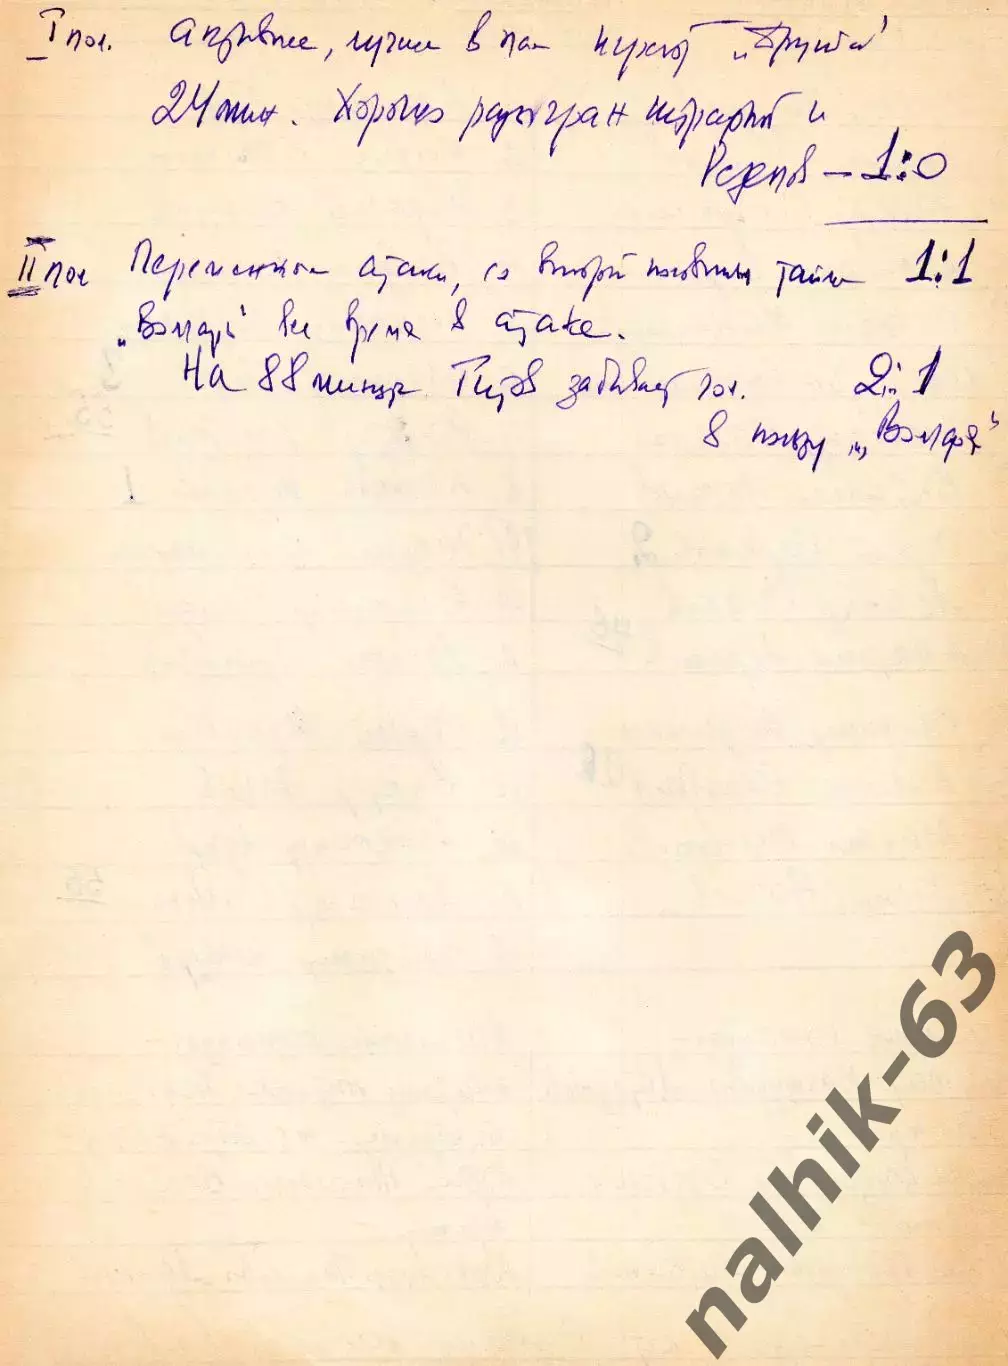 I пол. Активнее, лучше в пол играют „Дружба"
24 мин. Хорошо разыгран штрафной и
– 1:0
II пол Переменные атаки, со второй половины тайма 1:1
„Волгарь" все время в атаке.
На 88 минуте Титов забивает гол. 2:1
В пользу „Волгаря"
nalhik-63